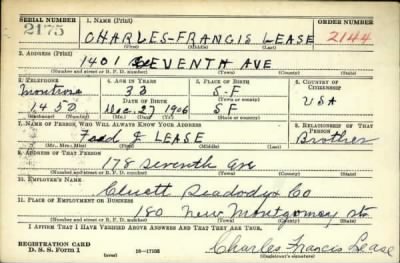 SERIAL NUMBER 1. NAME (Print) ORDER NUMBER
2175 CHARLES-FRANCIS LEASE 2144
(First) (Middle) (Last)
2. ADDRESS (Print)
1401 SEVENTH AVE
(Number and street or R. F. D. number) (Town) (County) (State)
3. TELEPHONE 4. AGE IN YEARS 5. PLACE OF BIRTH 6. COUNTRY OF CITIZENSHIP
Montrose 33 S-F USA
DATE OF BIRTH (Town or county)
1450 Dec. 27 1906 SF
(Exchange) (Number) (Mo.) (Day) (Yr.) (State or country)
7. NAME OF PERSON WHO WILL ALWAYS KNOW YOUR ADDRESS 8. RELATIONSHIP OF THAT PERSON
J LEASE Brother
(Mr., Mrs., Miss) (First) (Middle) (Last)
9. ADDRESS OF THAT PERSON
178 Seventh Ave
(Number and street or R. F. D. number) (Town) (County) (State)
10. EMPLOYER'S NAME
Cluett Peabody & Co
11. PLACE OF EMPLOYMENT OR BUSINESS
180 New Montgomery St.
(Number and street or R. F. D. number) (Town) (County) (State)
I AFFIRM THAT I HAVE VERIFIED ABOVE ANSWERS AND THAT THEY ARE TRUE.
REGISTRATION CARD
D. S. S. Form 1 (over) 16—17105 Charles Francis Lease
(Registrant's signature)